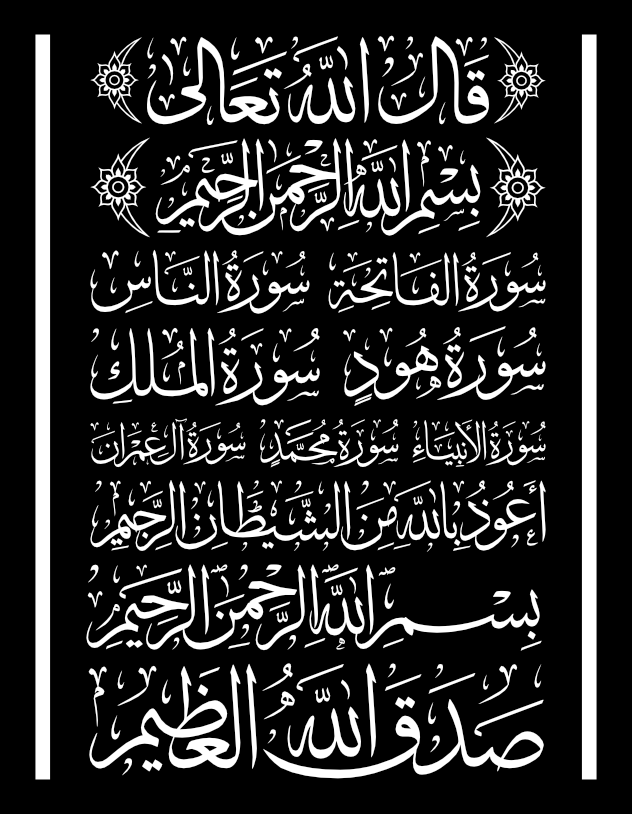 قَالَ اللَّهُ تَعَالَى
بِسْمِ اللَّهِ الرَّحْمَنِ الرَّحِيمِ
سُورَةُ الفَاتِحَةِ سُورَةُ النَّاسِ
سُورَةُ هُودٍ سُورَةُ المُلْكِ
سُورَةُ الأَنبِيَاءِ سُورَةُ مُحَمَّدٍ سُورَةُ آلِ عِمْرَانَ
أَعُوذُ بِاللَّهِ مِنَ الشَّيْطَانِ الرَّجِيمِ
بِسْمِ اللَّهِ الرَّحْمَنِ الرَّحِيمِ
صَدَقَ اللَّهُ العَظِيمُ